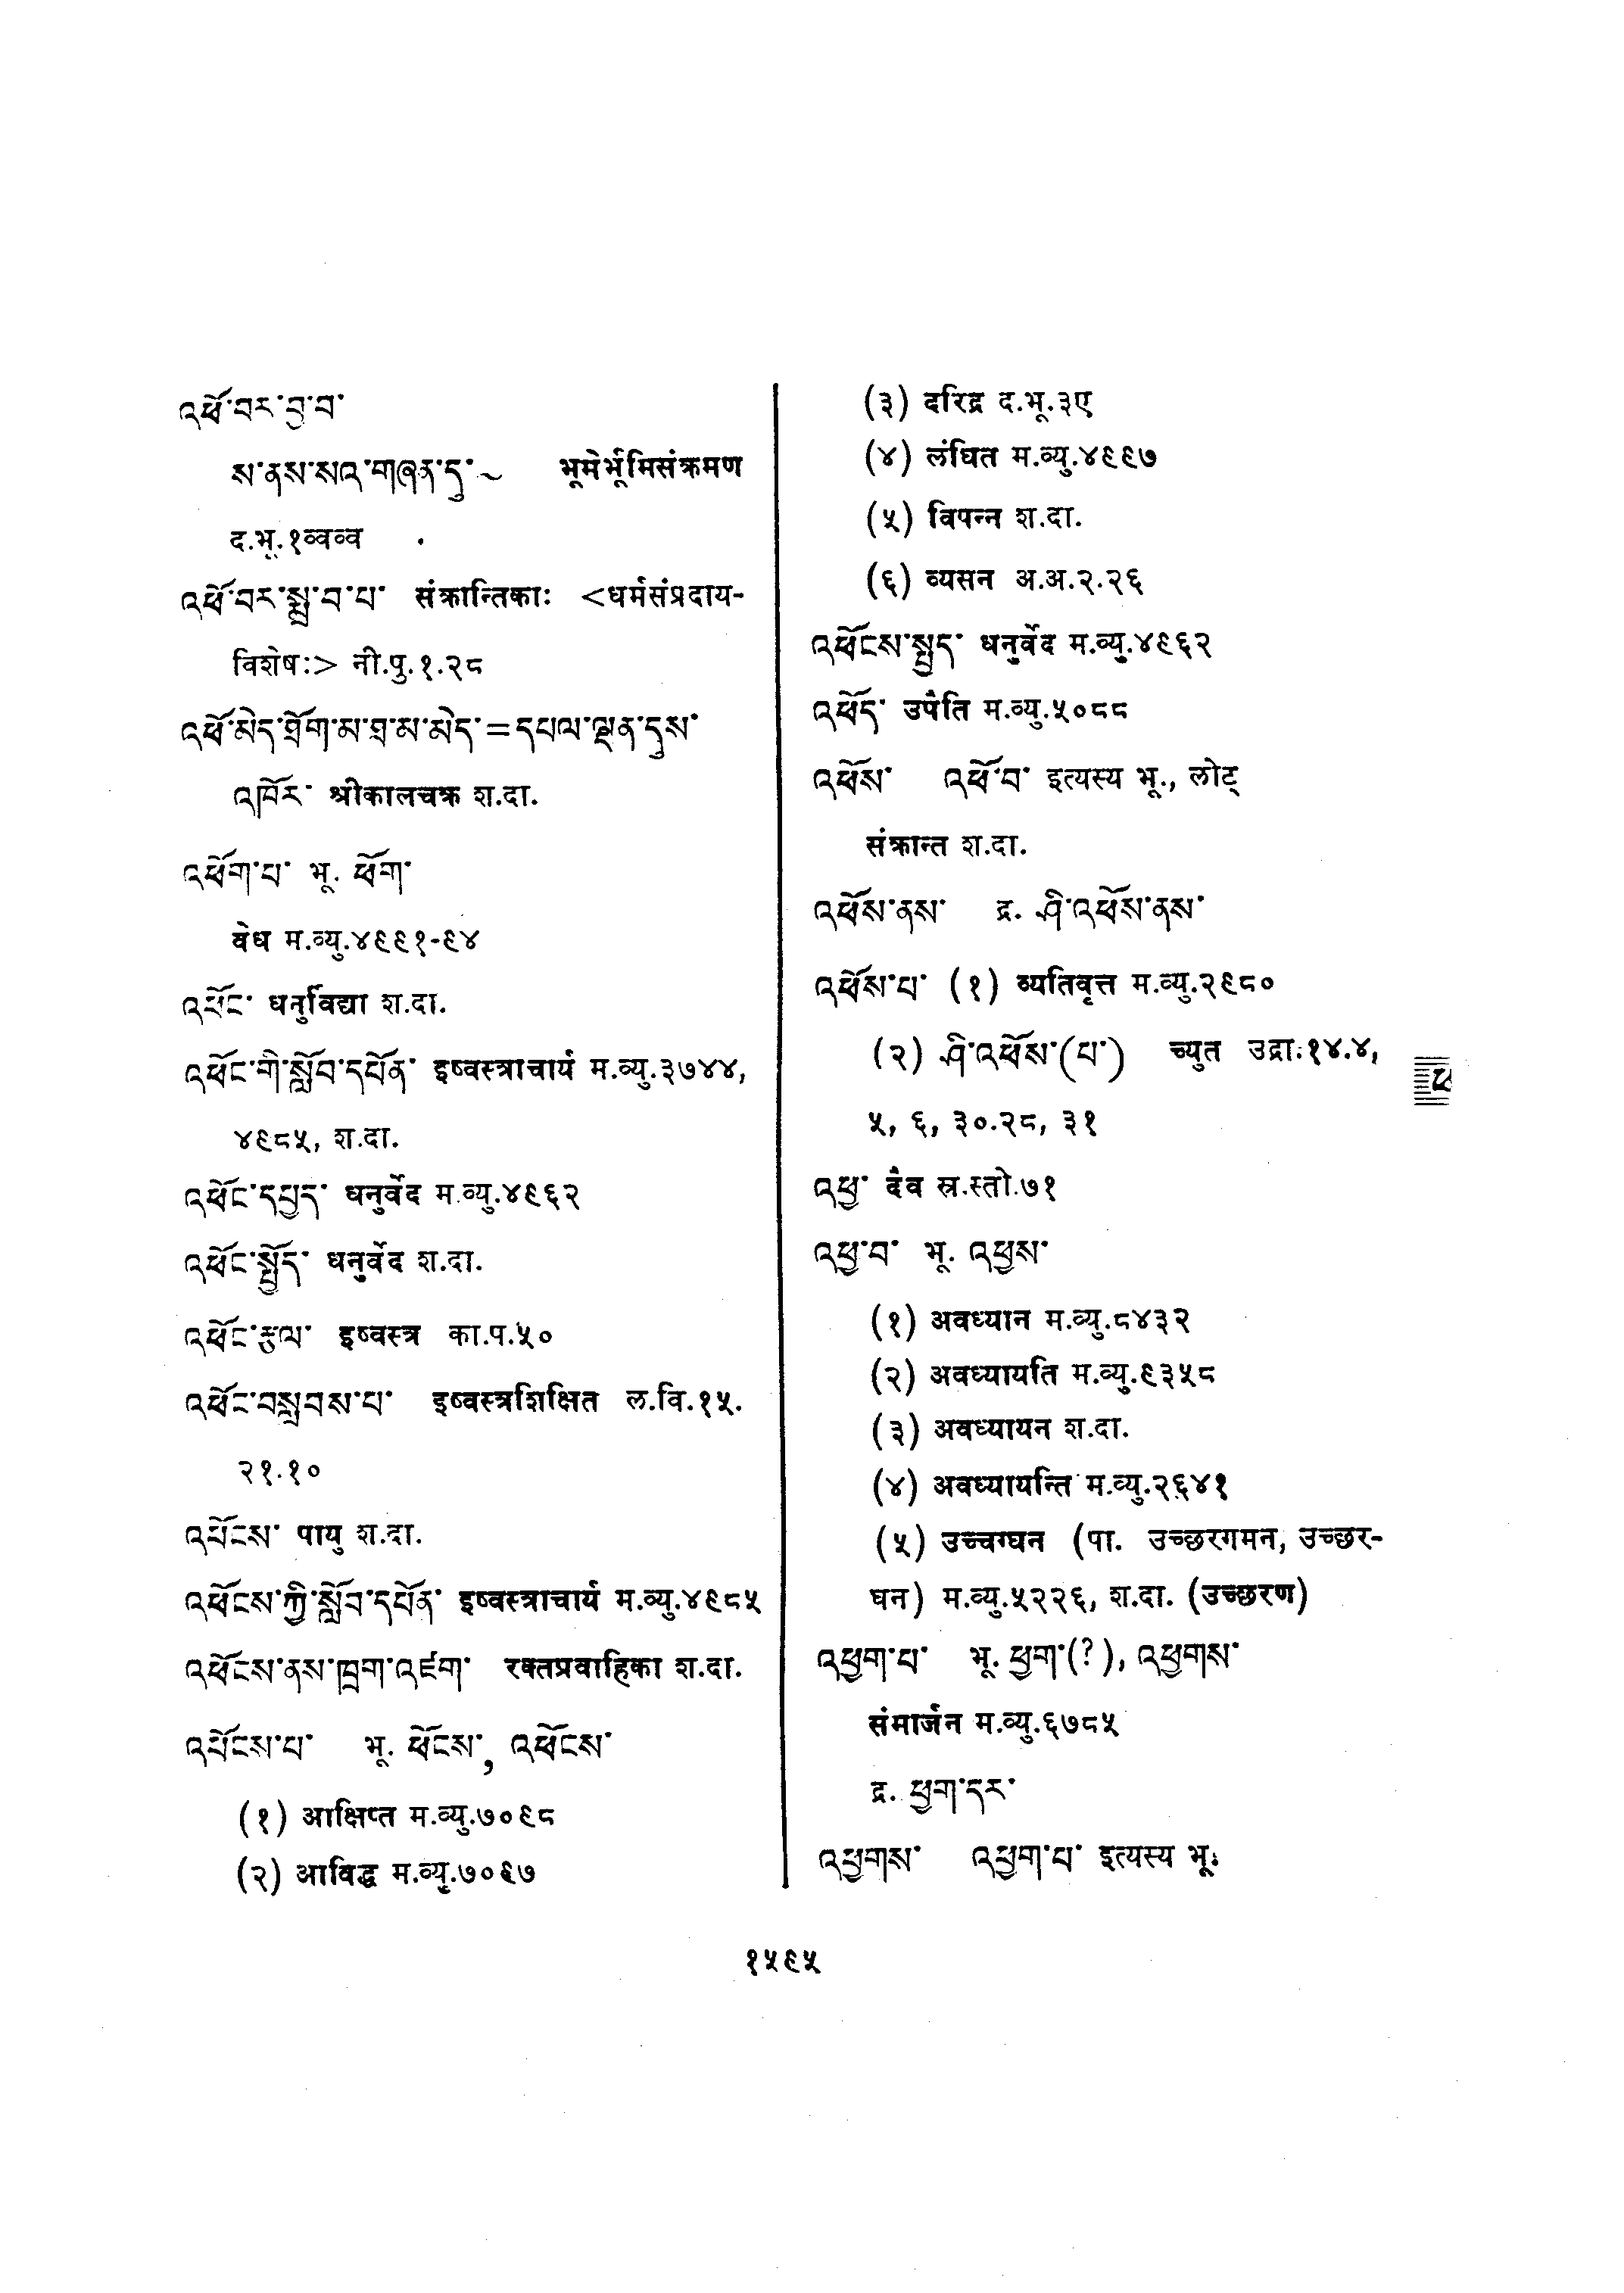 འཕོ་བར་བྱ་བ་
ས་ནས་སའ་གཞན་དུ་~ भूमेर्भूमिसंक्रमण
द.भू.१व्वव्व
འཕོ་བར་སྨྲ་བ་པ་ संक्रान्तिकाः <धर्मसंप्रदाय-
विशेषः> नी.पु.१.२८
འཕོ་མེད་ཐོག་མ་ཐ་མ་མེད་=དཔལ་ལྡན་དུས་
འཁོར་ श्रीकालचक्र श.दा.
འཕོག་པ་ भू. ཕོག་
वेध म.व्यु.४९९१-९४
འཕོང་ धनुर्विद्या श.दा.
འཕོང་གི་སློབ་དཔོན་ इष्वस्त्राचार्य म.व्यु.३७४४,
४९८५, श.दा.
འཕོང་དཔྱད་ धनुर्वेद म.व्यु.४९६२
འཕོང་སྤྱོད་ धनुर्वेद श.दा.
འཕོང་རྩལ་ इष्वस्त्र का.प.५०
འཕོང་བསླབས་པ་ इष्वस्त्रशिक्षित ल.वि.१५.
२१.१०
འཕོངས་ पायु श.दा.
འཕོངས་ཀྱི་སློབ་དཔོན་ इष्वस्त्राचार्य म.व्यु.४९८५
འཕོངས་ནས་ཁྲག་འཛག་ रक्तप्रवाहिका श.दा.
འཕོངས་པ་ भू. ཕོངས་, འཕོངས་
(१) आक्षिप्त म.व्यु.७०९८
(२) आविद्ध म.व्यु.७०९७
(३) दरिद्र द.भू.३ए
(४) लंघित म.व्यु.४९९७
(५) विपन्न श.दा.
(६) व्यसन अ.अ.२.२६
འཕོངས་སྤྱད་ धनुर्वेद म.व्यु.४९६२
འཕོད་ उपैति म.व्यु.५०८८
འཕོས་ འཕོ་བ་ इत्यस्य भू., लोट्
संक्रान्त श.दा.
འཕོས་ནས་ द्र. ཤི་འཕོས་ནས་
འཕོས་པ་ (१) व्यतिवृत्त म.व्यु.२९८०
(२) ཤི་འཕོས་(པ་) च्युत उद्राः१४.४,
५, ६, ३०.२८, ३१
འཕྱ་ दैव स्र.स्तो.७१
འཕྱ་བ་ भू. འཕྱས་
(१) अवध्यान म.व्यु.८४३२
(२) अवध्यायति म.व्यु.९३५८
(३) अवध्यायन श.दा.
(४) अवध्यायन्ति म.व्यु.२६४१
(५) उच्चग्घन (पा. उच्छरगमन, उच्छर-
घन) म.व्यु.५२२६, श.दा. (उच्छरण)
འཕྱག་པ་ भू. ཕྱག་(?), འཕྱགས་
संमार्जन म.व्यु.६७८५
द्र. ཕྱག་དར་
འཕྱགས་ འཕྱག་པ་ इत्यस्य भू.
ཕ
१५९५